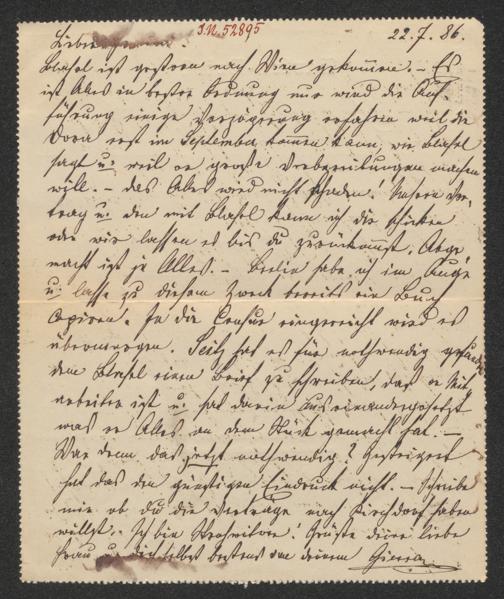 J.N. 52895
22.7.86.
Lieber
Blasel ist gestern nach Wien gekommen. – Es
ist Alles in bester Ordnung nur wird die Auf-
führung einige Verzögerung erfahren weil die
Dora erst im September kommen kann, wie Blasel
sagt u. weil er große Vorbereitungen machen
will. – Das Alles wird nicht schaden! Unsern Ver-
trag u. den mit Blasel kann ich dir schicken
oder wir lassen es bis du zurückkommst. Abge
macht ist ja Alles. – Berlin habe ich im Auge
u. lasse zu diesem Zweck bereits ein Buch
copiren. In die Censur eingereicht wird es
übermorgen. Seitz hat es für nothwendig gefunden
dem Blasel einen Brief zu schreiben, daß er Mit-
arbeiter ist u. hat darin auseinandergesetzt
was er Alles an dem Stück gemacht hat. –
War denn das jetzt nothwendig? Gesteigert
hat das den günstigen Eindruck nicht. – Schreibe
mir ob du die Verträge nach Kirchdorf haben
willst. Ich bin Strohwitwer! Grüße deine liebe
Frau u. dich selbst bestens von deinem